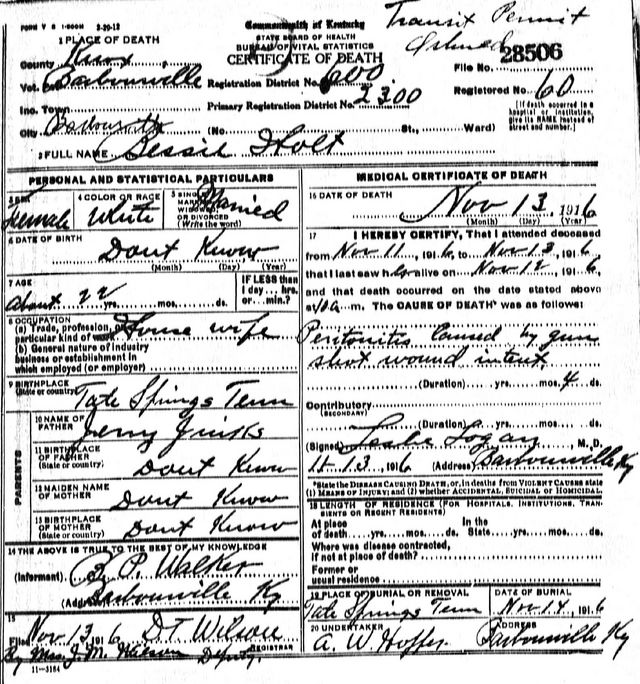 FORM V S 1-500M 3-29-12
Commonwealth of Kentucky
STATE BOARD OF HEALTH
BUREAU OF VITAL STATISTICS
CERTIFICATE OF DEATH
Transit Permit
File No. 28506
1 PLACE OF DEATH
County Knox
Vot. Barbourville
Registration District No. 600
Registered No. 60
Inc. Town
Primary Registration District No. 2300
[If death occurred in a hospital or institution, give its NAME instead of street and number.]
City Barbourville (No. St., Ward)
2 FULL NAME Bessie Holt
PERSONAL AND STATISTICAL PARTICULARS
3 SEX Female
4 COLOR OR RACE White
5 SINGLE MARRIED WIDOWED OR DIVORCED (Write the word) Married
6 DATE OF BIRTH Dont Know
(Month) (Day) (Year)
7 AGE
About 22 yrs. mos. ds.
IF LESS than 1 day hrs. or min.?
8 OCCUPATION
(a) Trade, profession, or particular kind of work House wife
(b) General nature of industry business or establishment in which employed (or employer)
9 BIRTHPLACE (State or country) Tate Springs Tenn
PARENTS
10 NAME OF FATHER Jerry
11 BIRTHPLACE OF FATHER (State or country) Dont Know
12 MAIDEN NAME OF MOTHER Dont Know
13 BIRTHPLACE OF MOTHER (State or country) Dont Know
14 THE ABOVE IS TRUE TO THE BEST OF MY KNOWLEDGE
(Informant) P. Walker
(Address) Barbourville Ky
15
Filed Nov 13 1916 D.T. Wilson
REGISTRAR
By Mrs. J. M. Wilson Deputy.
11-3184
MEDICAL CERTIFICATE OF DEATH
16 DATE OF DEATH
Nov 13, 1916
(Month) (Day) (Year)
17 I HEREBY CERTIFY, That I attended deceased
from Nov 11, 1916, to Nov 13, 1916
that I last saw her alive on Nov 12, 1916
and that death occurred on the date stated above
at m. The CAUSE OF DEATH* was as follows:
Peritonitis Caused by gun
shot wound
(Duration) yrs. mos. 4 ds.
Contributory
(SECONDARY)
(Duration) yrs. mos. ds.
(Signed) Leslie Logan, M.D.
11-13, 1916 (Address) Barbourville Ky
*State the DISEASE CAUSING DEATH, or, in deaths from VIOLENT CAUSES state (1) MEANS OF INJURY; and (2) whether ACCIDENTAL, SUICIDAL or HOMICIDAL.
18 LENGTH OF RESIDENCE (FOR HOSPITALS, INSTITUTIONS, TRANSIENTS OR RECENT RESIDENTS)
At place of death yrs. mos. ds. In the State yrs. mos. ds.
Where was disease contracted, if not at place of death?
Former or usual residence
19 PLACE OF BURIAL OR REMOVAL
Tate Springs Tenn
DATE OF BURIAL
Nov 14, 1916
20 UNDERTAKER
A. W. Hoffer
ADDRESS
Barbourville Ky